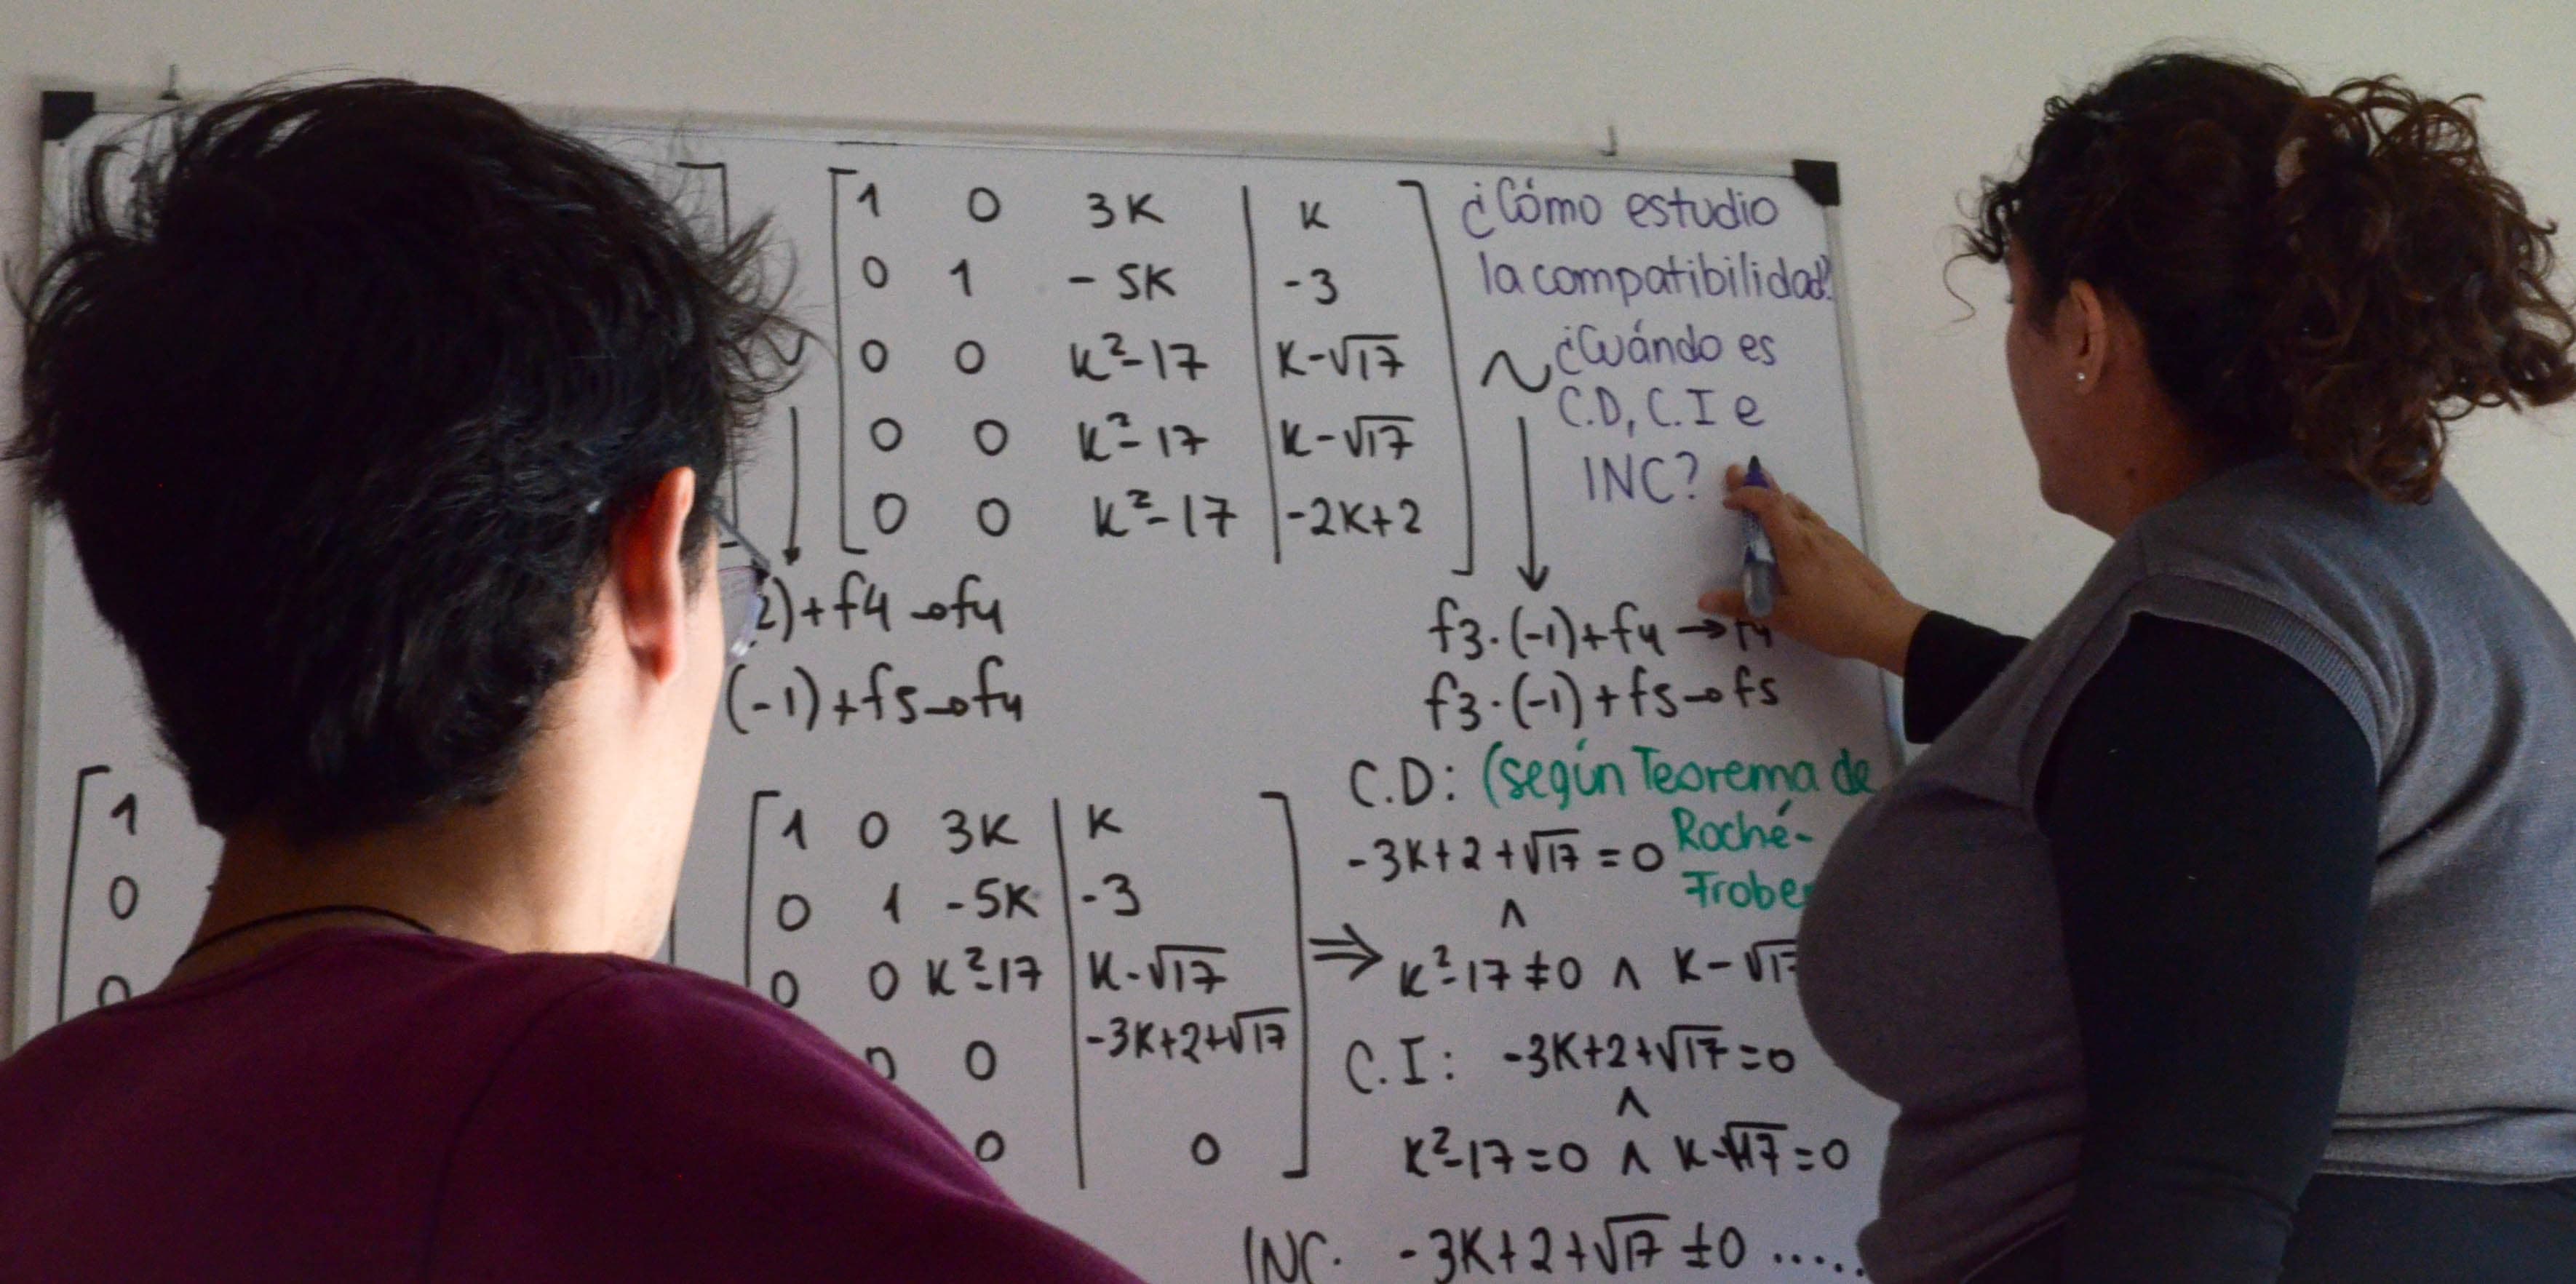 1 0 3K | K
0 1 -5K | -3
0 0 K²-17 | K-√17
0 0 K²-17 | K-√17
0 0 K²-17 | -2K+2
~
~
¿Cómo estudio
la compatibilidad?
¿Cuándo es
C.D, C.I e
INC?
2)+f4→f4
(-1)+f5→f4
f3·(-1)+f4→f4
f3·(-1)+f5→f5
1
0
0
1 0 3K | K
0 1 -5K | -3
0 0 K²-17 | K-√17
0 0 | -3K+2+√17
0 | 0
⇒
C.D: (según Teorema de
Roché-
-3K+2+√17=0
∧
K²-17≠0 ∧ K-√17
C.I: -3K+2+√17=0
∧
K²-17=0 ∧ K-√17=0
INC. -3K+2+√17≠0 .....